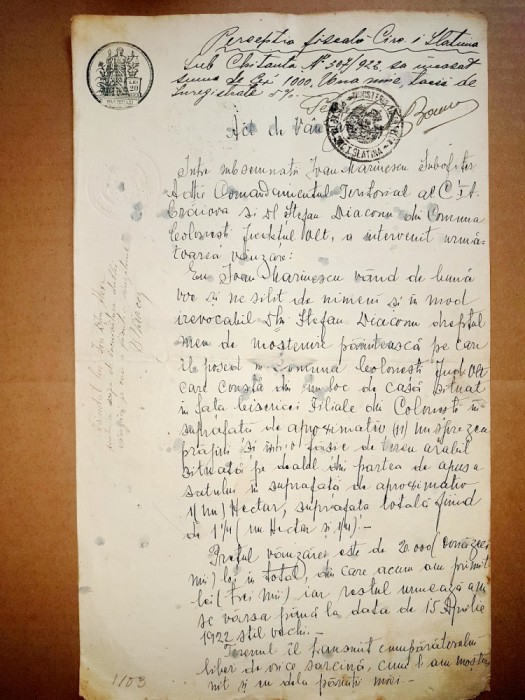 Percepția fiscală Circ I Slatina
Sub Chitanta Nº 507/922, sa incasat
suma de Lei 1000. Una mie, taxa de
înregistrare 5%.
LEI 20
MINISTERUL
SLATINA
Act de Vân
Între subsemnatii Ioan Marinescu Subofițer
Comandamentul Teritorial al C I A.
Craiova și Dl Ștefan Diaconu din Comuna
Colonești Județul Olt, a intervenit urmă-
toarea vânzare:
Eu Ioan Marinescu vând de bună
voe și nesilit de nimeni și in mod
irevocabil Dlui Ștefan Diaconu dreptul
meu de moștenire părintească pe care
îl posed în Comuna Colonești Jud. Olt
care constă din un loc de casă situat
in fața Bisericei Filiale din Colonești în
suprafață de aproximativ (11) unsprezece
prăjini și intr'o fâșie de teren arabil
situată pe dealul din partea de apus a
satului în suprafață de aproximativ
1 (un) Hectar, suprafața totală fiind
de 1¼ (un Hectar și ¼).-
Prețul vânzărei este de 20.000 (douăzeci
mii) lei în total, din care acum am primit
lei (trei mii) iar restul urmează a mi
se vărsa până la data de 15 Aprilie
1922 stil vechi.-
Terenul îl transmit cumpărătorului
liber de orice sarcină, cum l-am moște-
nit și eu dela părinții mei.-
1103